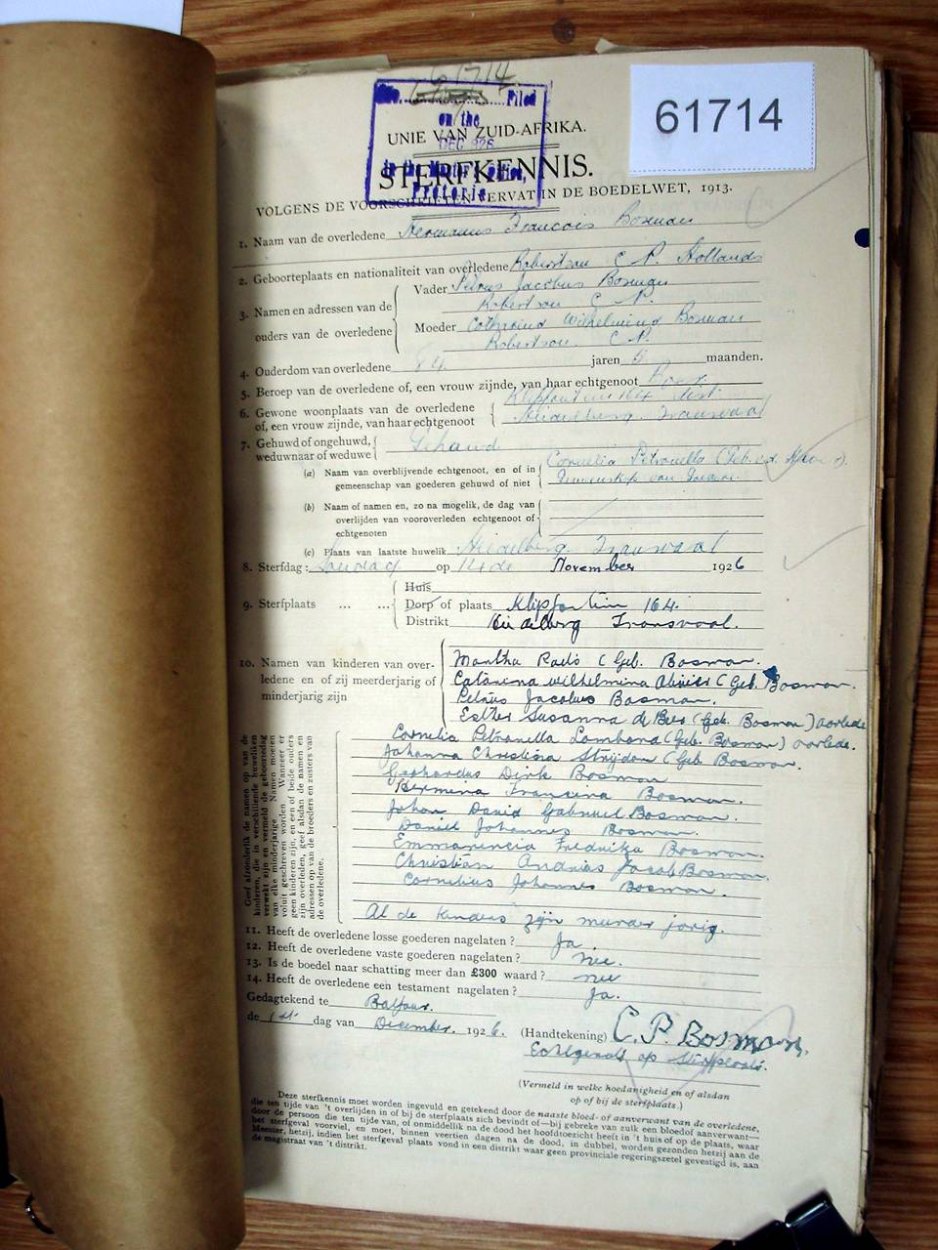 61714
61714
No. Filed
on the
DEC 1926
in the Master's Office,
Pretoria
UNIE VAN ZUID-AFRIKA.
STERFKENNIS.
VOLGENS DE VOORSCHRIFTEN VERVAT IN DE BOEDELWET, 1913.
1. Naam van de overledene Hermanus Francois Bosman
2. Geboorteplaats en nationaliteit van overledene Robertson C P. Hollands
3. Namen en adressen van de ouders van de overledene
Vader Petrus Jacobus Bosman
Robertson C P.
Moeder Catharina Wilhelmina Bosman
Robertson C P.
4. Ouderdom van overledene 84 jaren 5 maanden.
5. Beroep van de overledene of, een vrouw zijnde, van haar echtgenoot
6. Gewone woonplaats van de overledene of, een vrouw zijnde, van haar echtgenoot
Klipfontein 164 Dist
Heidelberg Transvaal
7. Gehuwd of ongehuwd, weduwnaar of weduwe
Gehuud
(a) Naam van overblijvende echtgenoot, en of in gemeenschap van goederen gehuwd of niet
Cornelia Petronella (Geb. v.d.
Gemenskap van
(b) Naam of namen en, zo na mogelik, de dag van overlijden van vooroverleden echtgenoot of echtgenoten
(c) Plaats van laatste huwelik Heidelberg Transvaal
8. Sterfdag: Sondag op 14de November 1926
9. Sterfplaats ... ...
Huis
Dorp of plaats Klipfontein 164.
Distrikt Heidelberg Transvaal.
10. Namen van kinderen van overledene en of zij meerderjarig of minderjarig zijn
Martha Rads (Geb. Bosman.
Catarina Wilhelmina Olivier (Geb. Bosman.
Petrus Jacobus Bosman.
Esther Susanna de Beer (Geb. Bosman) overlede
Cornelia Petronella Lombard (Geb. Bosman) overlede.
Johanna Christina Strijdom (Geb Bosman.
Gerhardus Dirk Bosman
Hermina Francina Bosman.
Johan David Gabriel Bosman.
Daniel Johannes Bosman.
Emmarencia Fredrika Bosman.
Christian Andries Jacob Bosman.
Cornelius Johannes Bosman.
Al de kinders zijn meerder jarig.
Geef afzonderlik de namen op van de
kinderen, die in verschillende huweliken
verwekt zijn en vermeld de geboortedag
van elke minderjarige. Namen moeten
voluit geschreven worden. Wanneer er
geen kinderen zijn, en een of beide ouders
zijn overleden, geef alsdan de namen en
adressen op van de broeders en zusters van
de overledene.
11. Heeft de overledene losse goederen nagelaten? Ja.
12. Heeft de overledene vaste goederen nagelaten? nee.
13. Is de boedel naar schatting meer dan £300 waard? nee
14. Heeft de overledene een testament nagelaten? Ja.
Gedagtekend te Balfour.
de 1st dag van December. 1926.
(Handtekening) C. P. Bosman.
Echtgenoot op sterfplaats.
(Vermeld in welke hoedanigheid en of alsdan
op of bij de sterfplaats.)
Deze sterfkennis moet worden ingevuld en getekend door de naaste bloed- of aanverwant van de overledene,
die ten tijde van 't overlijden in of bij de sterfplaats zich bevindt of—bij gebreke van zulk een bloedof aanverwant—
door de persoon die ten tijde van, of onmiddelik na de dood het hoofdtoezicht heeft in 't huis of op de plaats, waar
het sterfgeval voorviel, en moet, binnen veertien dagen na de dood, in dubbel, worden gezonden hetzij aan de
Meester, hetzij, indien het sterfgeval plaats vond in een distrikt waar geen provinciale regeringszetel gevestigd is, aan
de magistraat van 't distrikt.